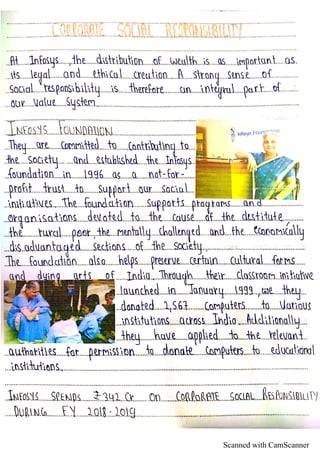 CORPORATE SOCIAL RESPONSIBILITY
At Infosys, the distribution of wealth is as important as
its legal and ethical creation A strong sense of
social responsibility is therefore an integral part of
our value system.
INFOSYS FOUNDATION
They are committed to contributing to
the society and established the Infosys
foundation in 1996 as a not-for-
profit trust to support our social
initiatives. The foundation supports programs and
organisations devoted to the cause of the destitute
the rural poor, the mentally challenged and the economically
disadvantaged sections of the society.
The foundation also helps preserve certain cultural forms
and dying arts of India. Through their classroom initiative
launched in January 1999, we they
donated 2,567 computers to various
institutions across India. Additionally
they have applied to the relevant
authorities for permission to donate computers to educational
institutions.
INFOSYS SPENDS ₹342 Cr ON CORPORATE SOCIAL RESPONSIBILITY
DURING FY 2018-2019
Scanned with CamScanner